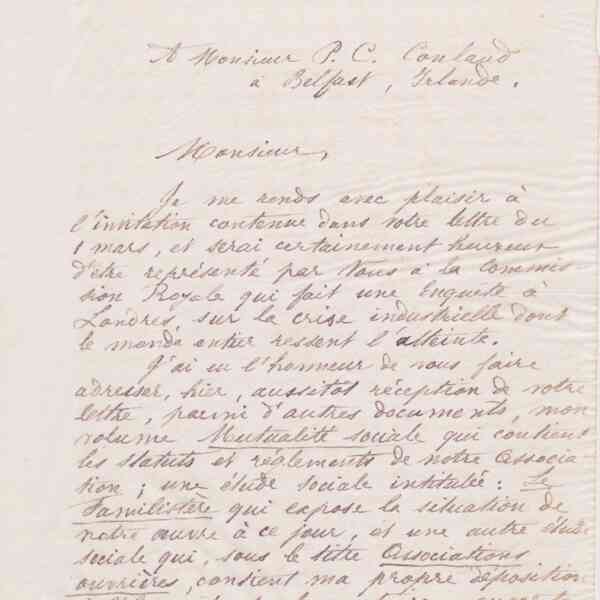 A Monsieur P. C. Conland
à Belfast, Irlande.
Monsieur,
Je me rends avec plaisir à
l'invitation contenue dans votre lettre du
1 mars, et serai certainement heureux
d'être représenté par Vous à la Commis-
sion Royale qui fait une Enquête à
Londres sur la crise industrielle dont
le monde entier ressent l'atteinte.
J'ai eu l'honneur de vous faire
adresser, hier, aussitôt réception de votre
lettre, parmi d'autres documents, mon
volume Mutualité sociale qui contient
les statuts et réglements de notre Associa
tion ; une étude sociale intitulée : Le
Familistère qui expose la situation de
notre œuvre à ce jour, et une autre étude
sociale qui, sous le titre Associations
ouvrières, contient ma propre déposition